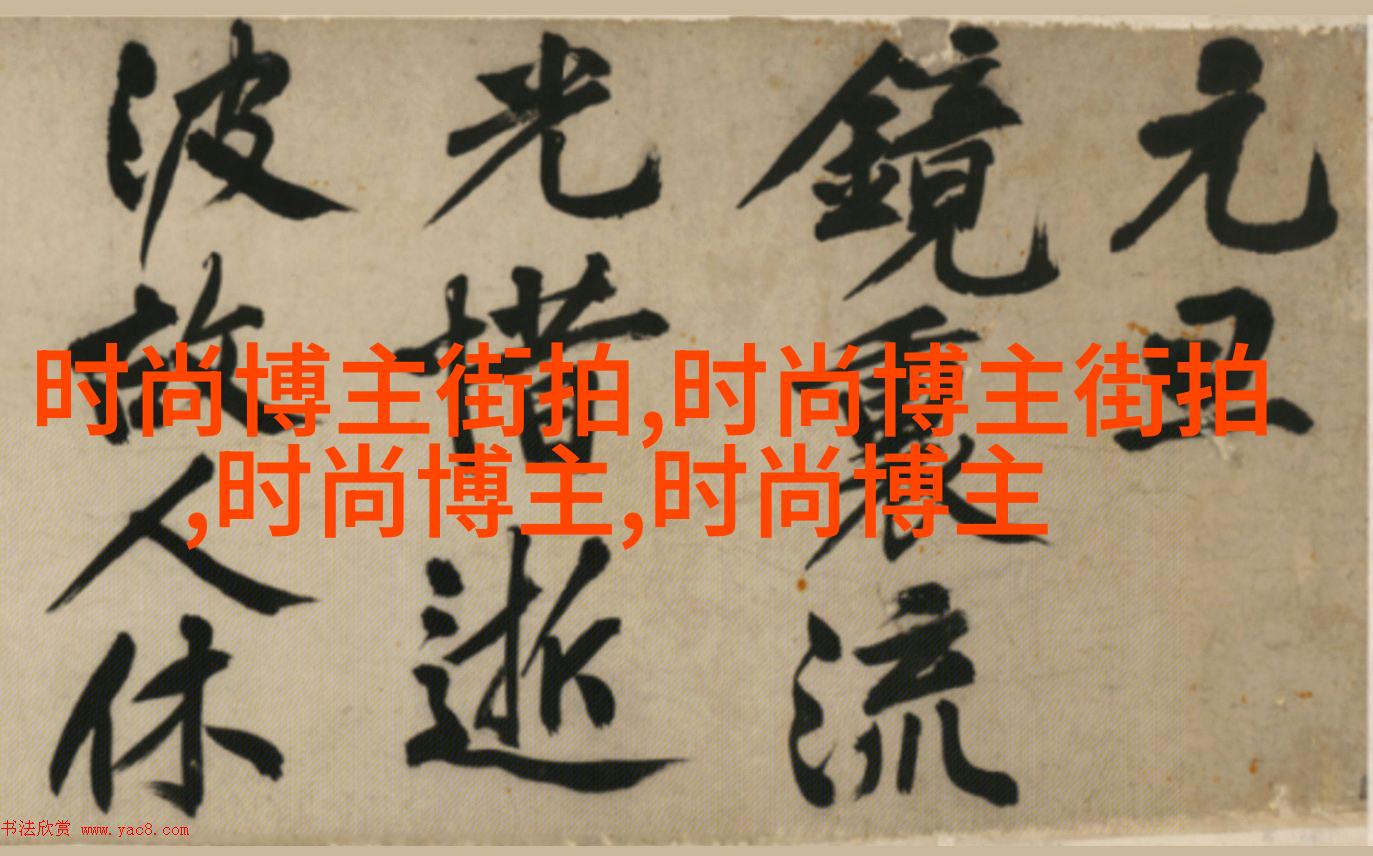 元丑
鏡裏流
光惜逝
波故人休
时尚博主街拍,时尚博主街拍
,时尚博主,时尚博主
书法欣赏 www.yac8.com